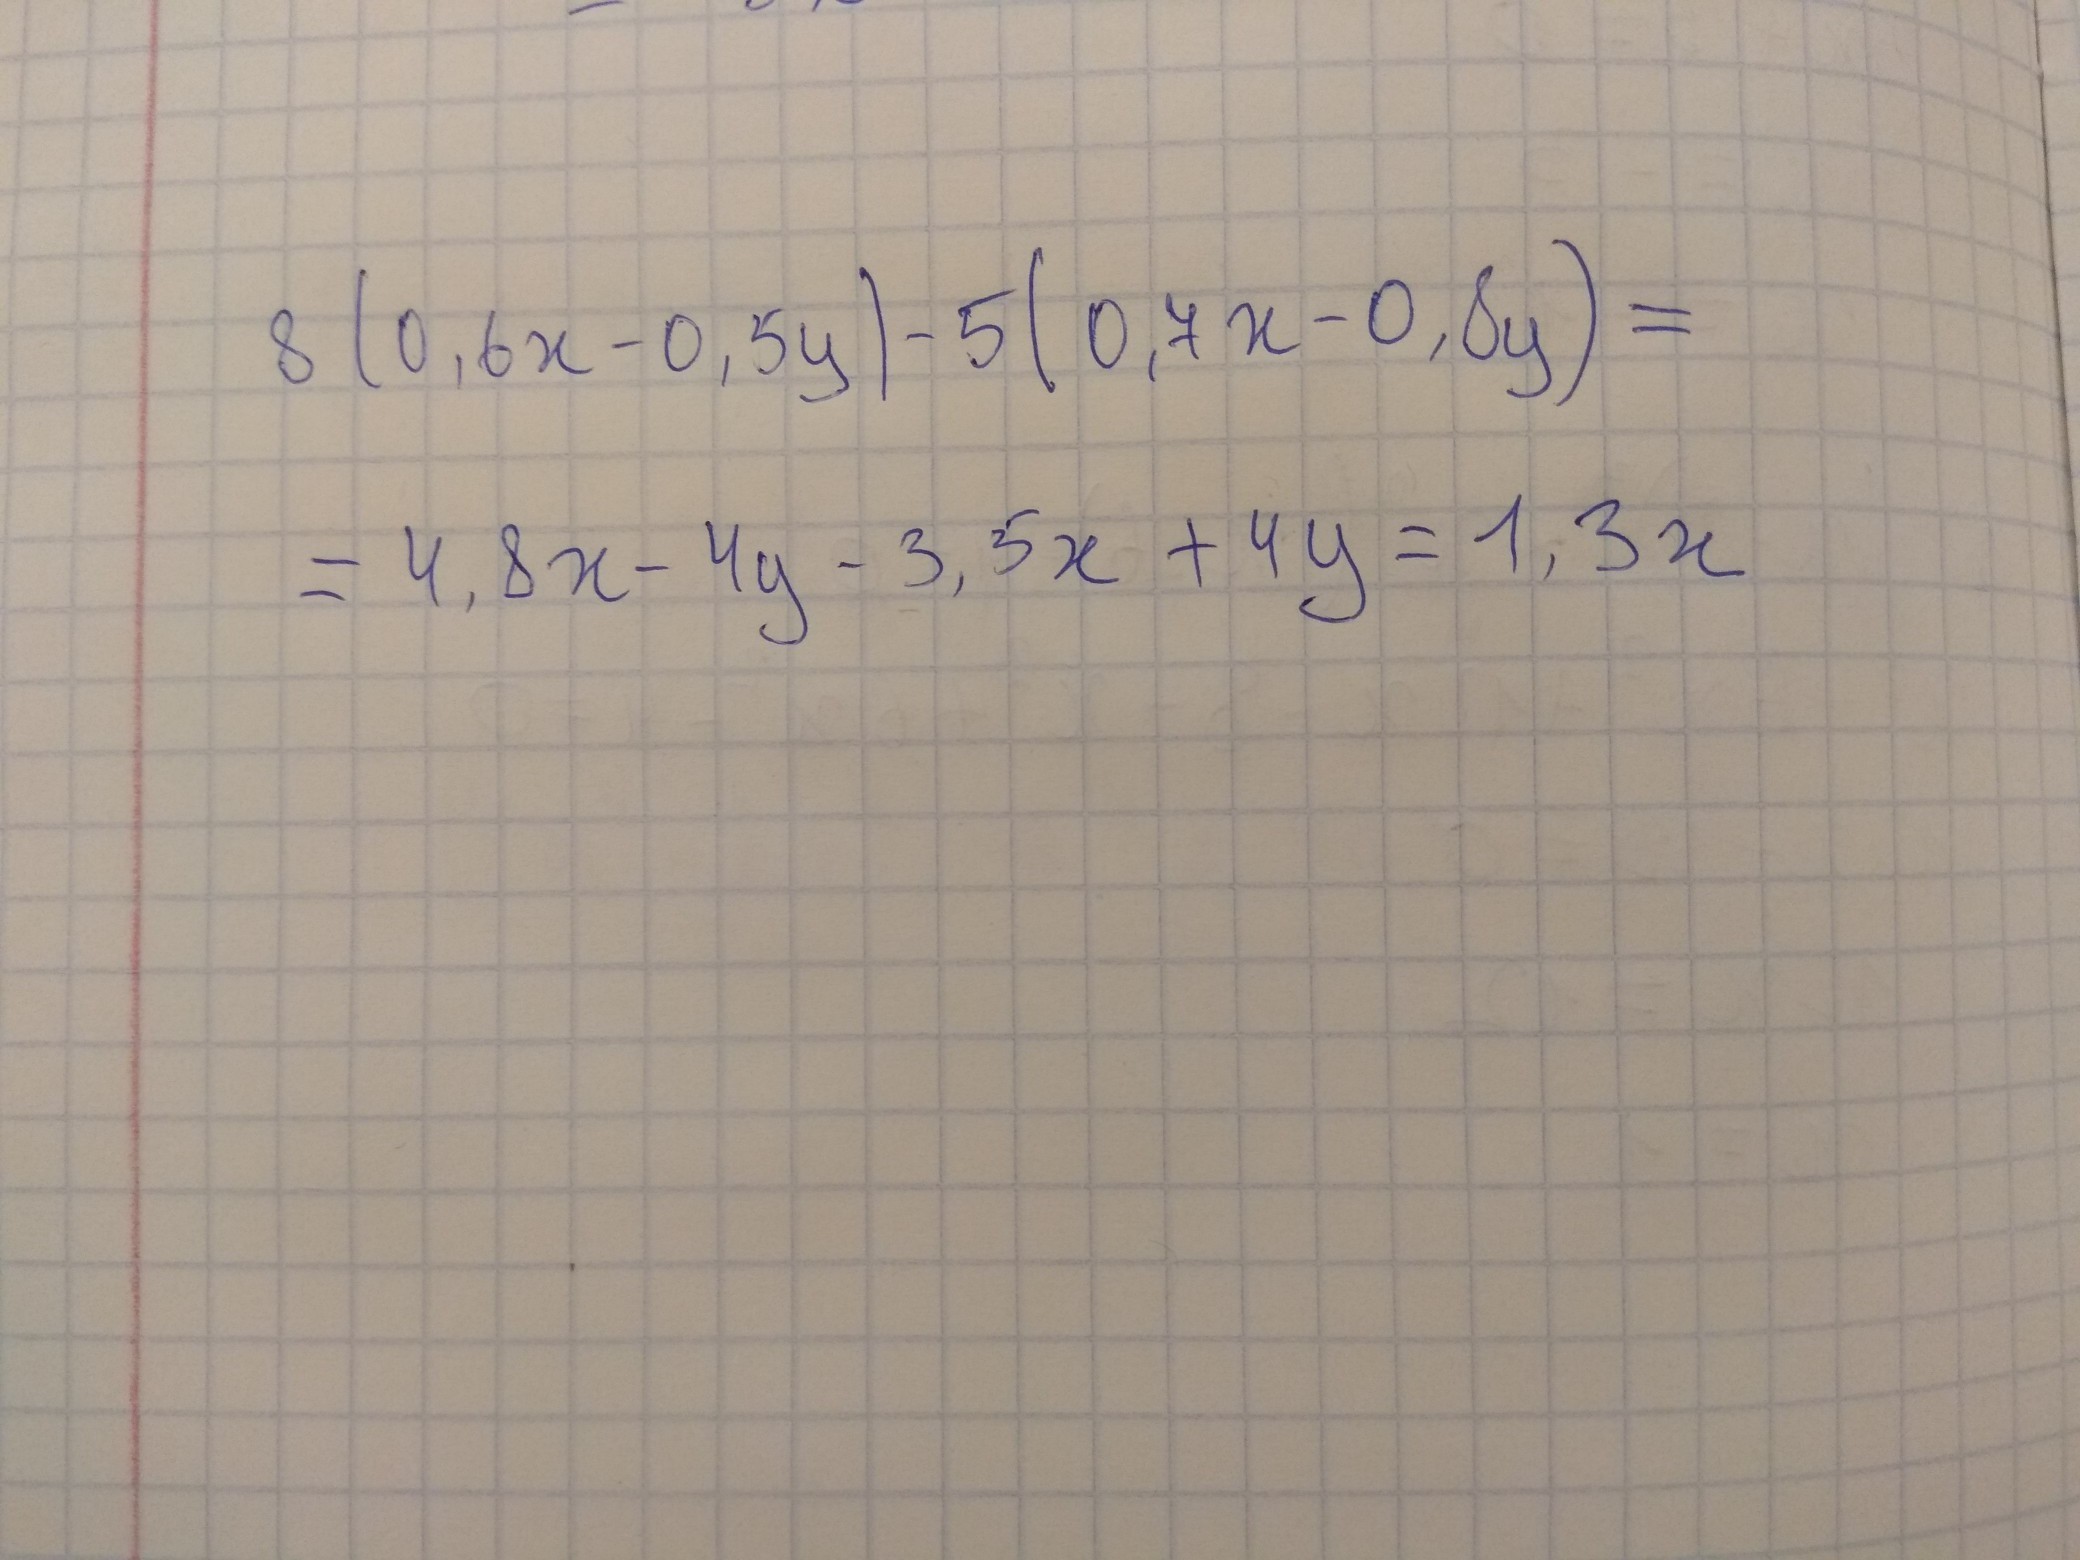 8(0,6x-0,5y)-5(0,7x-0,8y)=
=4,8x-4y-3,5x+4y=1,3x